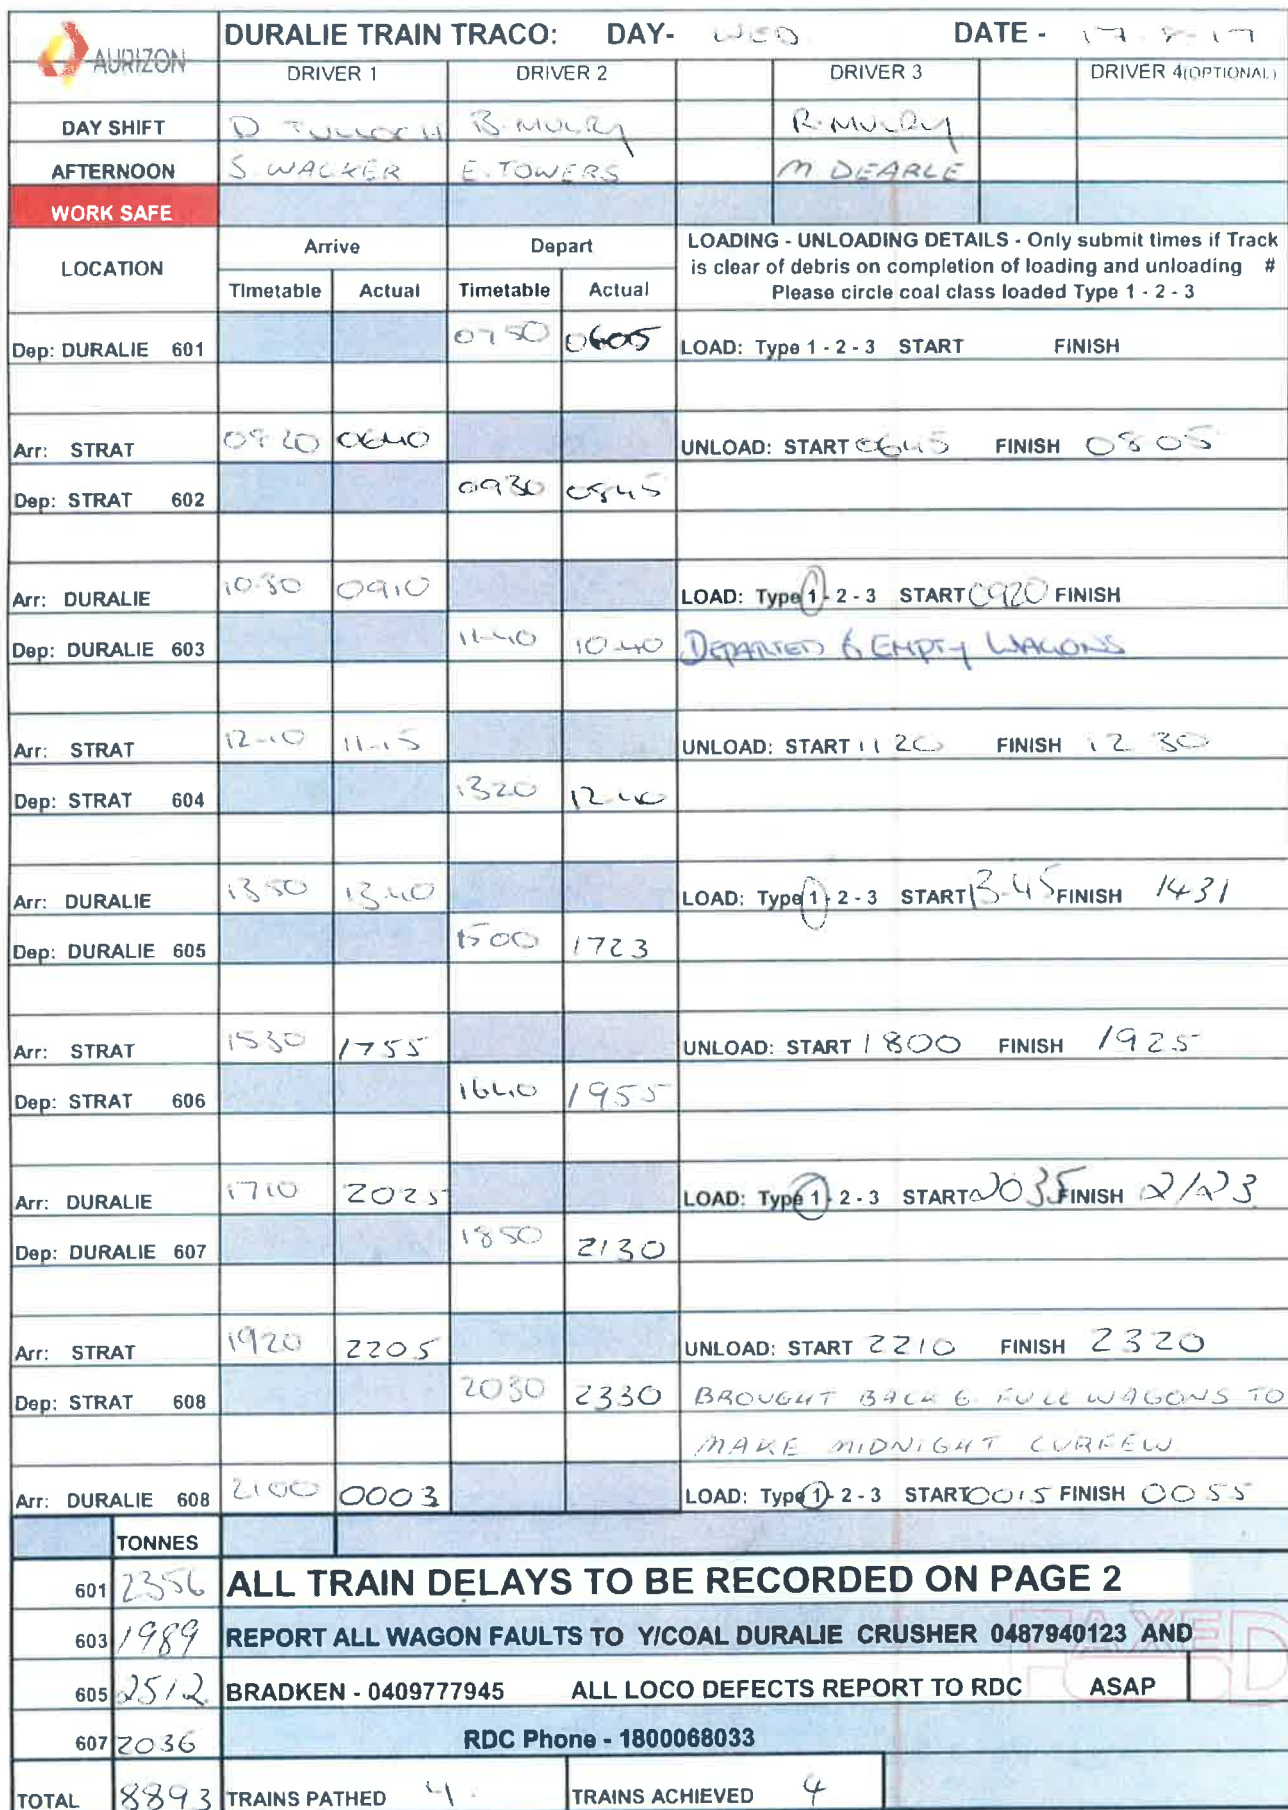 AURIZON
DURALIE TRAIN TRACO: DAY- WED DATE - 
DRIVER 1 DRIVER 2 DRIVER 3 DRIVER 4(OPTIONAL)
DAY SHIFT D TULLOCH B. MULRY R. MULRY
AFTERNOON S. WALKER E. TOWERS M DEARLE
WORK SAFE
LOCATION Arrive Depart LOADING - UNLOADING DETAILS - Only submit times if Track
is clear of debris on completion of loading and unloading #
Timetable Actual Timetable Actual Please circle coal class loaded Type 1 - 2 - 3
Dep: DURALIE 601 0750 0605 LOAD: Type 1 - 2 - 3 START FINISH
Arr: STRAT 0820 0640 UNLOAD: START 0645 FINISH 0805
Dep: STRAT 602 0930 0845
Arr: DURALIE 10.30 0910 LOAD: Type 1 - 2 - 3 START 0920 FINISH
Dep: DURALIE 603 11-40 10-40 DEPARTED 6 EMPTY WAGONS
Arr: STRAT 12-10 11-15 UNLOAD: START 1120 FINISH 12 30
Dep: STRAT 604 1320 12-40
Arr: DURALIE 1350 13-40 LOAD: Type 1 - 2 - 3 START 13-45 FINISH 1431
Dep: DURALIE 605 1500 1723
Arr: STRAT 1530 1755 UNLOAD: START 1800 FINISH 1925
Dep: STRAT 606 1640 1955
Arr: DURALIE 1710 2025 LOAD: Type 1 - 2 - 3 START 2035 FINISH 2123
Dep: DURALIE 607 1850 2130
Arr: STRAT 1920 2205 UNLOAD: START 2210 FINISH 2320
Dep: STRAT 608 2030 2330 BROUGHT BACK 6 FULL WAGONS TO
MAKE MIDNIGHT CURFEW
Arr: DURALIE 608 2100 0003 LOAD: Type 1 - 2 - 3 START 0015 FINISH 0055
TONNES
601 2356 ALL TRAIN DELAYS TO BE RECORDED ON PAGE 2
603 1989 REPORT ALL WAGON FAULTS TO Y/COAL DURALIE CRUSHER 0487940123 AND
FAXED
605 2512 BRADKEN - 0409777945 ALL LOCO DEFECTS REPORT TO RDC ASAP
607 2036 RDC Phone - 1800068033
TOTAL 8893 TRAINS PATHED 4 TRAINS ACHIEVED 4